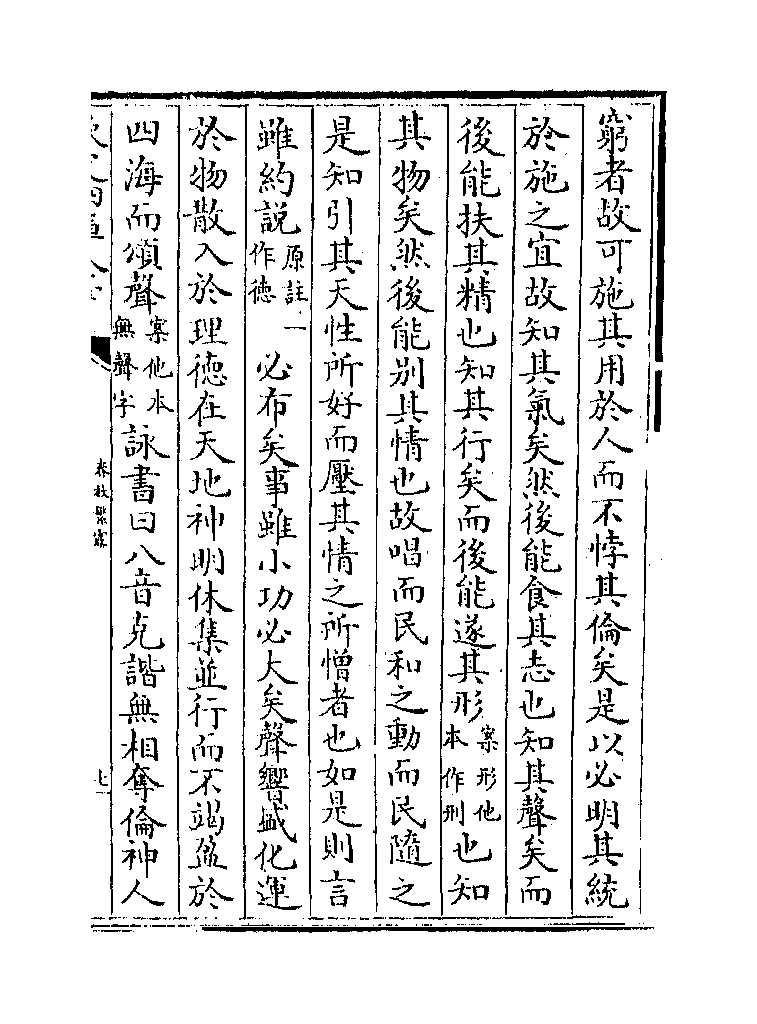 窮者故可施其用於人而不悖其倫矣是以必明其統
於施之宜故知其氣矣然後能食其志也知其聲矣而
後能扶其精也知其行矣而後能遂其形案形他本作刑也知
其物矣然後能别其情也故唱而民和之動而民隨之
是知引其天性所好而壓其情之所憎者也如是則言
雖約説原註一作徳必布矣事雖小功必大矣聲響盛化運
於物散入於理徳在天地神明休集並行而不竭盈於
四海而頌聲案他本無聲字詠書曰八音克諧無相奪倫神人
春秋繁露
七